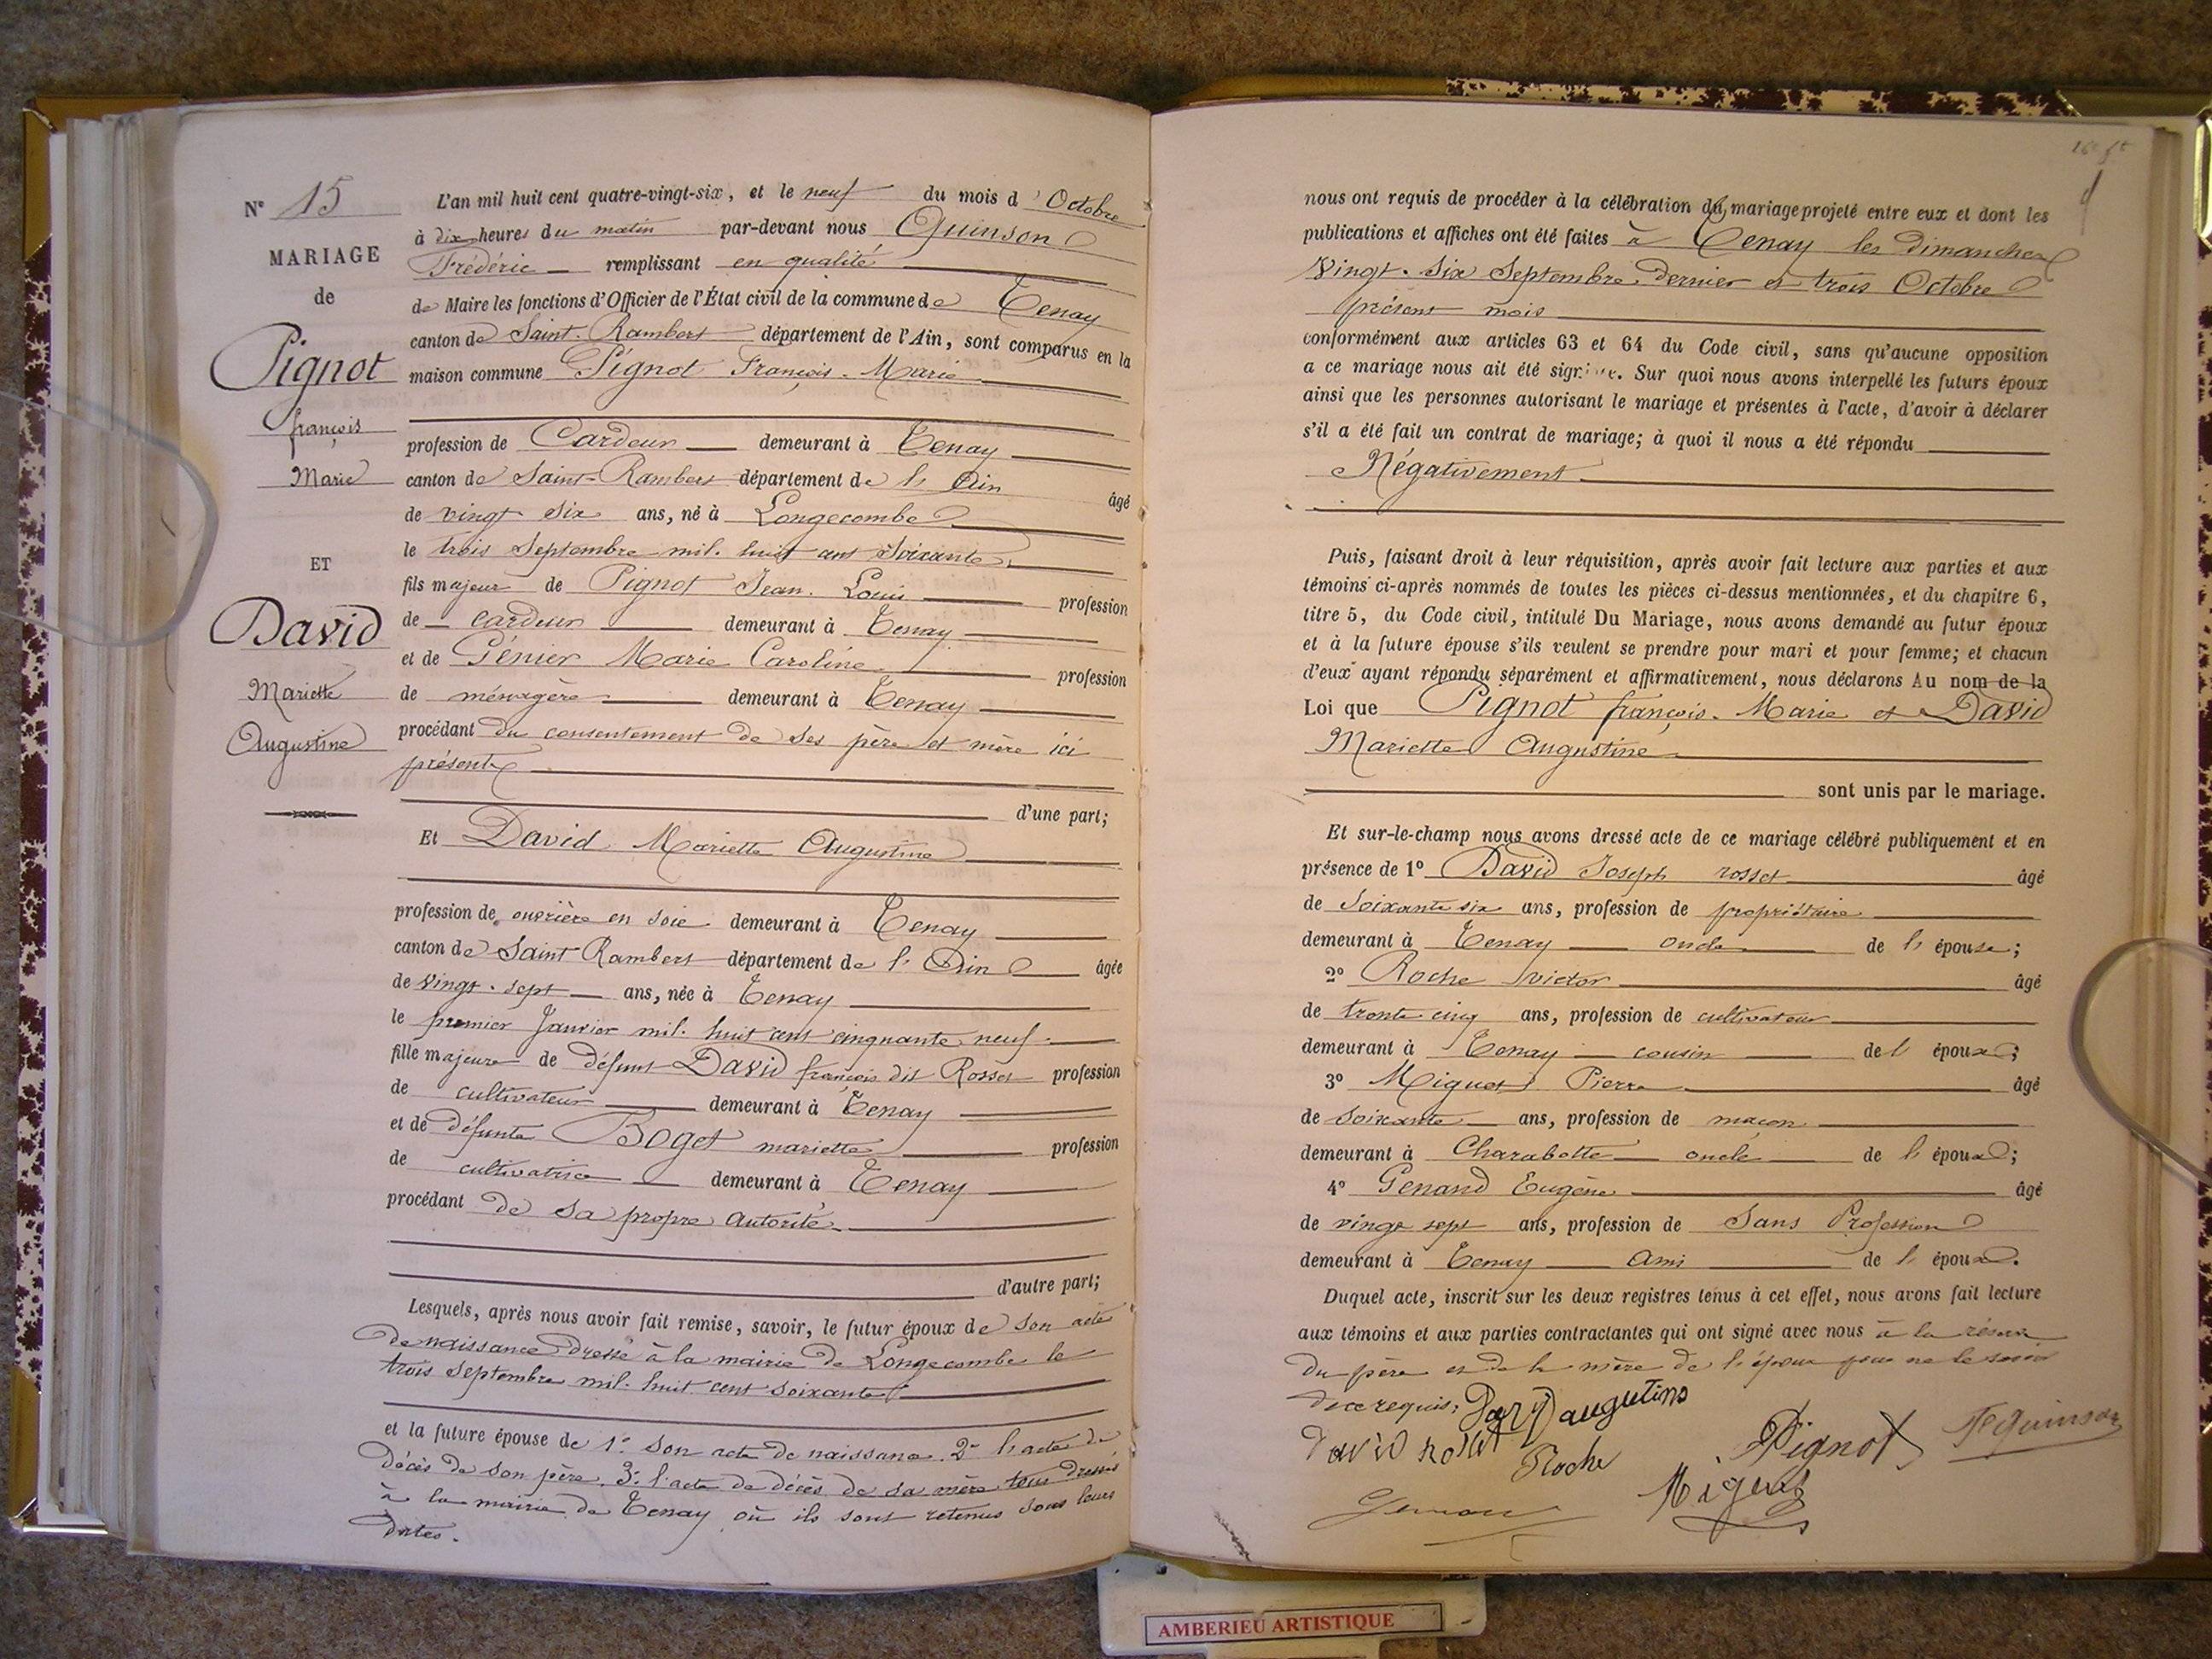 N° 15
MARIAGE
de
Pignot
françois
Marie
ET
David
Mariette
Augustine
L'an mil huit cent quatre-vingt-six, et le neuf du mois d'Octobre
à dix heures du matin par-devant nous Quinson
Frédéric remplissant en qualité
de Maire les fonctions d'Officier de l'État civil de la commune de Tenay
canton de Saint-Rambert département de l'Ain, sont comparus en la
maison commune Pignot François-Marie
profession de Cardeur demeurant à Tenay
canton de Saint-Rambert département de l'Ain âgé
de vingt six ans, né à Longecombe
le trois Septembre mil huit cent soixante
fils majeur de Pignot Jean Louis profession
de cardeur demeurant à Tenay
et de Génier Marie Caroline profession
de ménagère demeurant à Tenay
procédant du consentement de ses père et mère ici
présents
d'une part;
Et David Mariette Augustine
profession de ouvrière en soie demeurant à Tenay
canton de Saint Rambert département de l'Ain âgée
de vingt-sept ans, née à Tenay
le premier Janvier mil huit cent cinquante neuf
fille majeure de défunt David françois dit Rosset profession
de cultivateur demeurant à Tenay
et de défunte Boget mariette profession
de cultivatrice demeurant à Tenay
procédant de sa propre autorité
d'autre part;
Lesquels, après nous avoir fait remise, savoir, le futur époux de son acte
de naissance dressé à la mairie de Longecombe le
trois septembre mil huit cent soixante
et la future épouse de 1° son acte de naissance 2° l'acte de
décès de son père, 3° l'acte de décès de sa mère tous dressés
à la mairie de Tenay où ils sont retenus sous leurs
dates.
nous ont requis de procéder à la célébration du mariage projeté entre eux et dont les
publications et affiches ont été faites à Tenay les dimanches
vingt-six Septembre dernier et trois Octobre
présent mois
conformément aux articles 63 et 64 du Code civil, sans qu'aucune opposition
a ce mariage nous ait été signifiée. Sur quoi nous avons interpellé les futurs époux
ainsi que les personnes autorisant le mariage et présentes à l'acte, d'avoir à déclarer
s'il a été fait un contrat de mariage; à quoi il nous a été répondu
Négativement
Puis, faisant droit à leur réquisition, après avoir fait lecture aux parties et aux
témoins ci-après nommés de toutes les pièces ci-dessus mentionnées, et du chapitre 6,
titre 5, du Code civil, intitulé Du Mariage, nous avons demandé au futur époux
et à la future épouse s'ils veulent se prendre pour mari et pour femme; et chacun
d'eux ayant répondu séparément et affirmativement, nous déclarons Au nom de la
Loi que Pignot françois-Marie et David
Mariette Augustine
sont unis par le mariage.
Et sur-le-champ nous avons dressé acte de ce mariage célébré publiquement et en
présence de 1° David Joseph rosset âgé
de soixante six ans, profession de propriétaire
demeurant à Tenay oncle de l'épouse;
2° Roche victor âgé
de trente cinq ans, profession de cultivateur
demeurant à Tenay cousin de l'époux;
3° Miguet Pierre âgé
de soixante ans, profession de maçon
demeurant à Charabotte oncle de l'époux;
4° Genand Eugène âgé
de vingt sept ans, profession de Sans Profession
demeurant à Tenay ami de l'époux.
Duquel acte, inscrit sur les deux registres tenus à cet effet, nous avons fait lecture
aux témoins et aux parties contractantes qui ont signé avec nous à la réserve
du père et de la mère de l'époux pour ne le savoir
de ce requis;
David rosset
Roche
Pignot
Fc Quinson
Miguet
AMBERIEU ARTISTIQUE